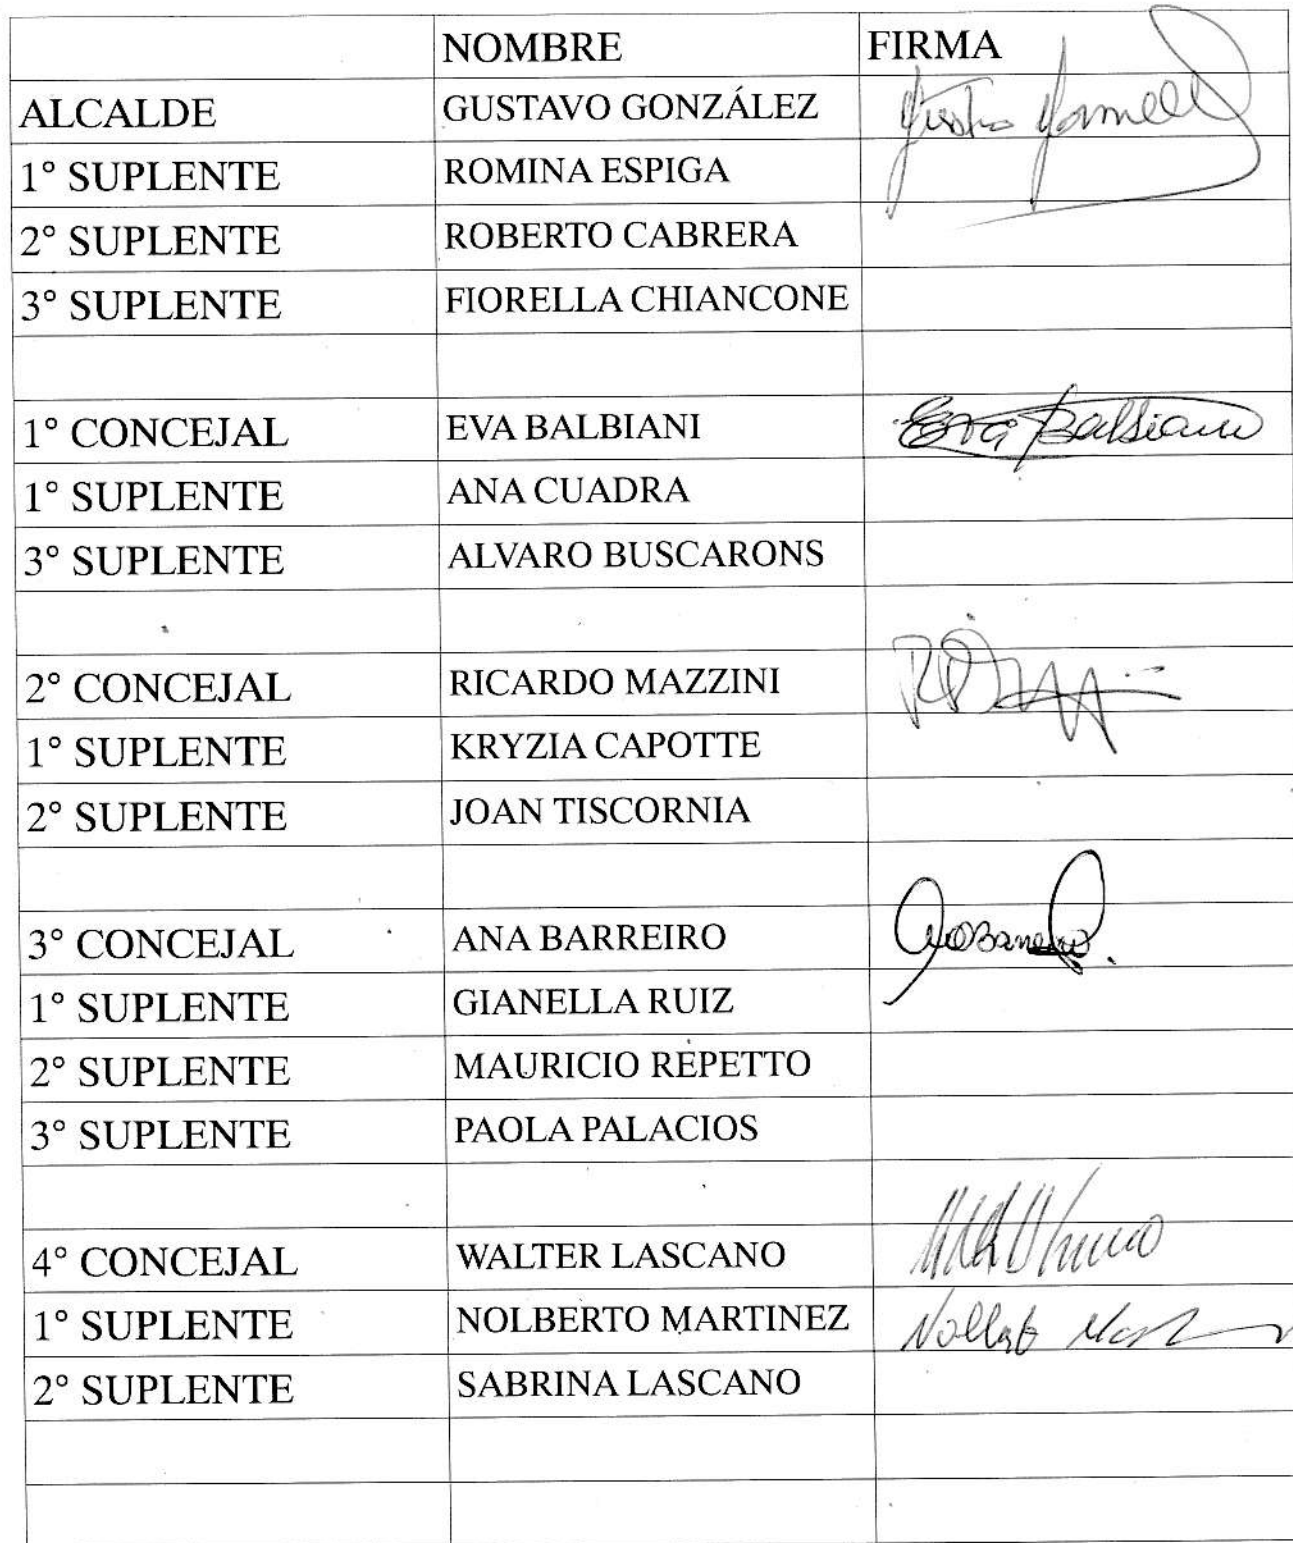 NOMBRE FIRMA
ALCALDE GUSTAVO GONZÁLEZ
1° SUPLENTE ROMINA ESPIGA
2° SUPLENTE ROBERTO CABRERA
3° SUPLENTE FIORELLA CHIANCONE
1° CONCEJAL EVA BALBIANI Eva Balbiani
1° SUPLENTE ANA CUADRA
3° SUPLENTE ALVARO BUSCARONS
2° CONCEJAL RICARDO MAZZINI
1° SUPLENTE KRYZIA CAPOTTE
2° SUPLENTE JOAN TISCORNIA
3° CONCEJAL ANA BARREIRO
1° SUPLENTE GIANELLA RUIZ
2° SUPLENTE MAURICIO REPETTO
3° SUPLENTE PAOLA PALACIOS
4° CONCEJAL WALTER LASCANO
1° SUPLENTE NOLBERTO MARTINEZ
2° SUPLENTE SABRINA LASCANO